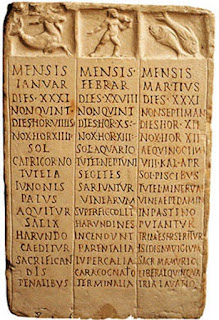 MENSIS
IANVAR
DIES·XXXI
NONQVINT
DIESHORVIIIIS
NOXHORXIIII
SOL
CAPRICORNO
TVTELA
IVNONIS
PALVS
AQVITVR
SALIX
HARVNDO
CAEDITVR
SACRIFICAN
DIS
PENATIBVS
MENSIS
FEBRAR
DIES·XXVIII
NONQVINT
DIESHOR·X·S
SOL·AQVARIO
TVTEL·NEPTVNI
SEGETES
SARIVNTVR
VINEARVM
SVPERFIC·COLIT
HARVNDINES
INCENDVNT
PARENTALIA
LVPERCALIA
CARACOGNATIO
TERMINALIA
MENSIS
MARTIVS
DIES·XXXI
NONSEPTIMAN
DIESHOR·XII
NOXHOR·XII
AEQVINOCTIVM
VIII·KAL·APR
SOL·PISCIBVS
TVTEL·MINERVAE
VINEAEPEDAMIN
INPASTINO
PVTANTVR
TRIMESTRSERITVR
ISIDISNAVIGIVM
SACR·MAMVRIO
LIBERALQVINQVA
TRIA·LAVATIO